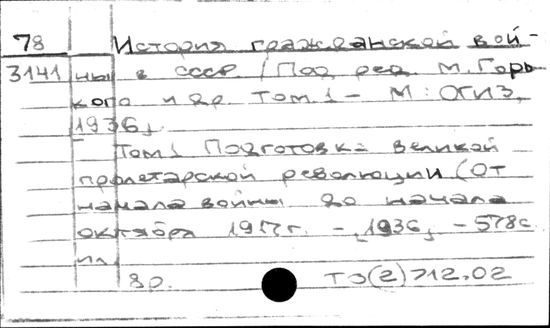 78 История гражданской вой-
3141 ны в СССР. / Под ред. М. Горь
кого и др. Том.1 – М : ОГИЗ,
[1936].
Том1 Подготовка великой
пролетарской революции (От
начала войны до начала
октября 1917г. – [1936]. – 578с
ил.
8р. Т3(2)712.02